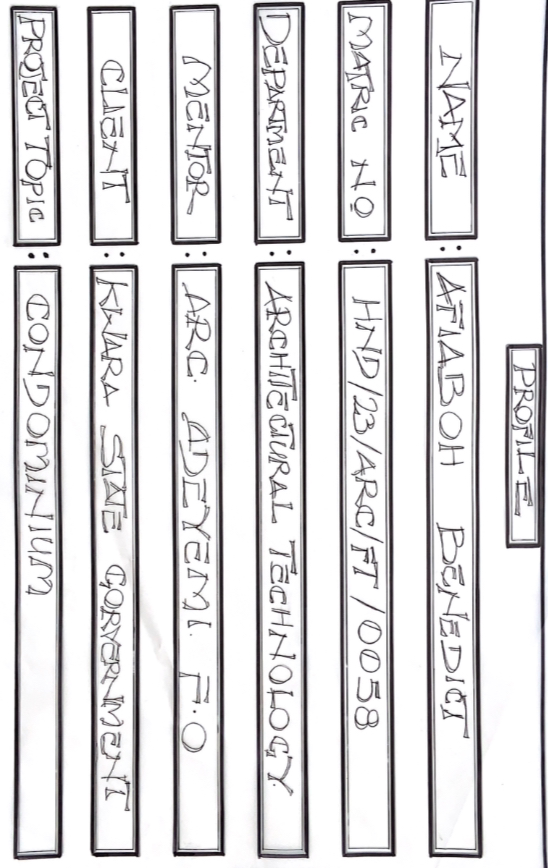 PROFILE
NAME : ATIABOH BENEDICT
MATRIC NO : HND/23/ARC/FT/0058
DEPARTMENT : ARCHITECTURAL TECHNOLOGY.
MENTOR : ARC. ADEYEMI. F.O
CLIENT : KWARA STATE GORVERNMENT
PROJECT TOPIC : CONDOMINIUM